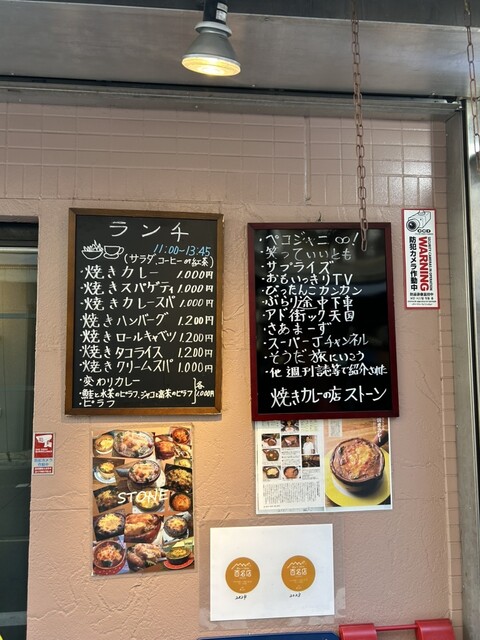 ランチ
11:00~13:45
(サラダ、コーヒーor紅茶)
・焼きカレー 1.000円
・焼きスパゲティ 1.000円
・焼きカレースパ 1.000円
・焼きハンバーグ 1.200円
・焼きロールキャベツ 1.200円
・焼きタコライス 1.200円
・焼きクリームスパ 1.000円
・変わりカレー
・鮭と水菜のピラフ、ジャコと高菜のピラフ
・ピラフ
各1,000円
・ペコジャニ∞!
・笑っていいとも
・サプライズ
・おもいっきりTV
・ぴったんこカンカン
・ぶらり途中下車
・アド街ック天国
・さあまーず
・スーパーJチャンネル
・そうだ旅にいこう
・他週刊誌等で紹介された
焼きカレーの店ストーン
WARNING
防犯カメラ作動中
STONE
百名店
2024
百名店
2023